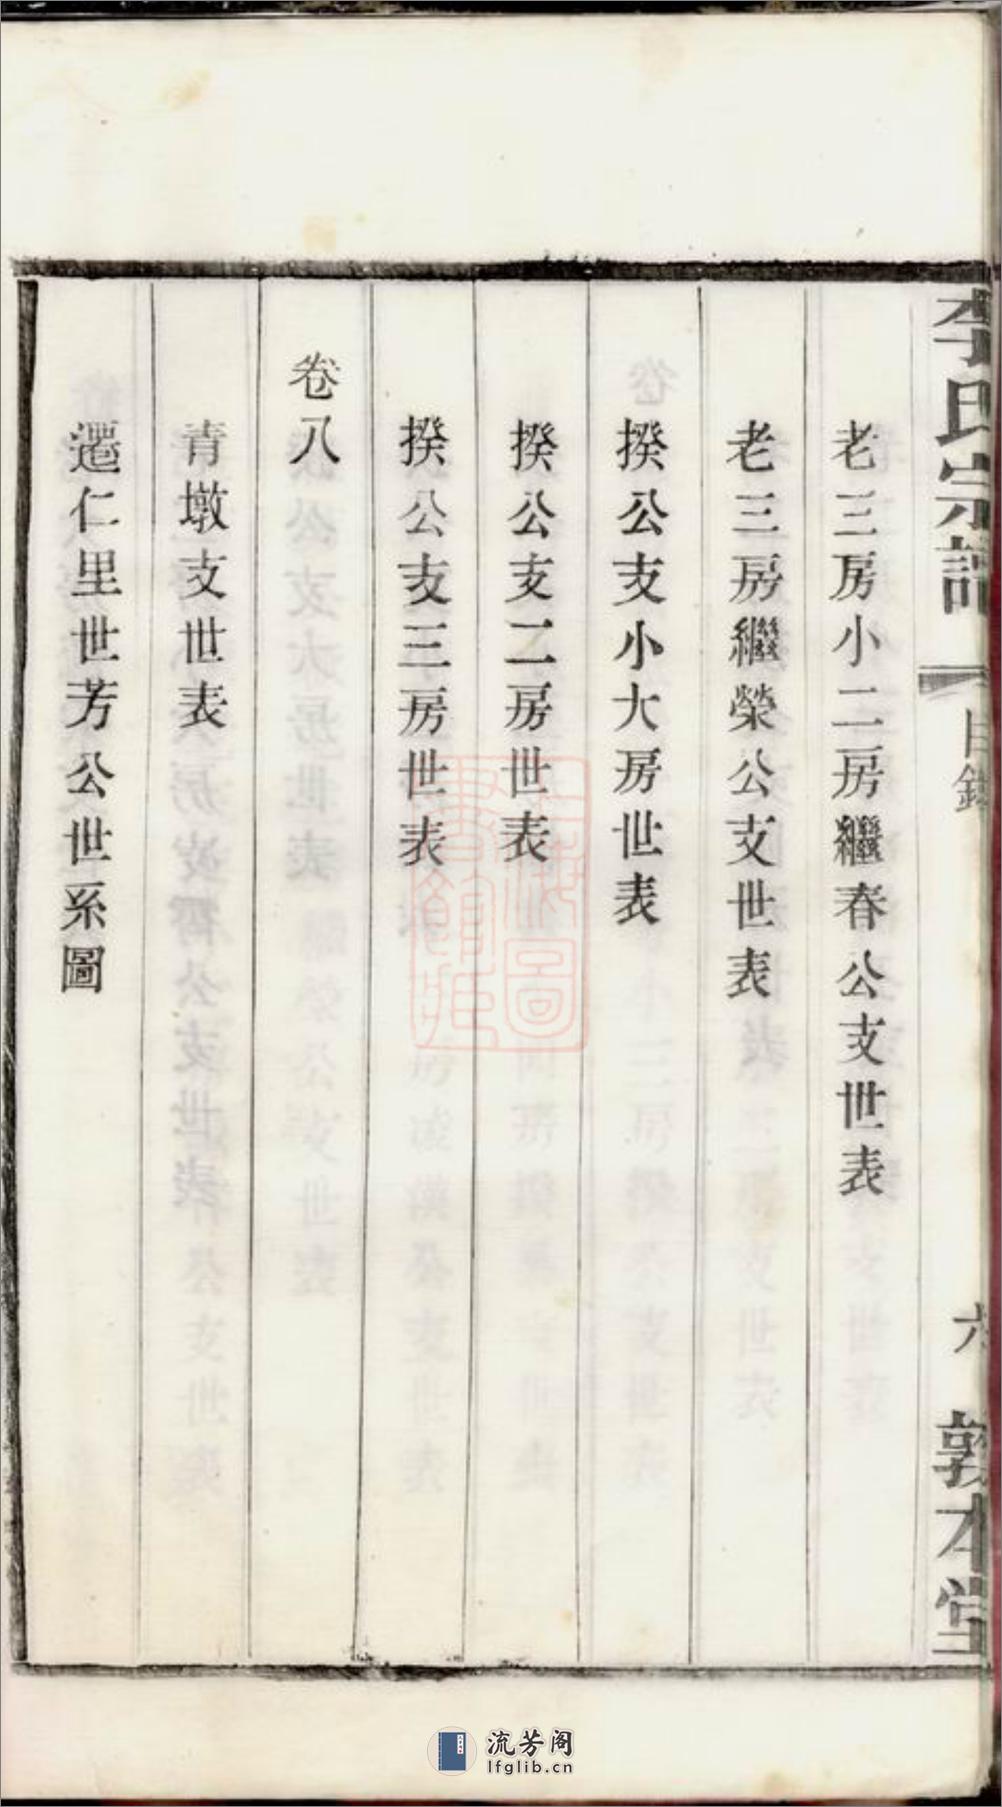 李氏宗譜
目錄
六
敦本堂
老三房小二房繼春公支世表
老三房繼榮公支世表
揆公支小大房世表
揆公支二房世表
揆公支三房世表
卷八
青墩支世表
遷仁里世芳公世系圖
上海圖書館藏
流芳阁
lfglib.cn